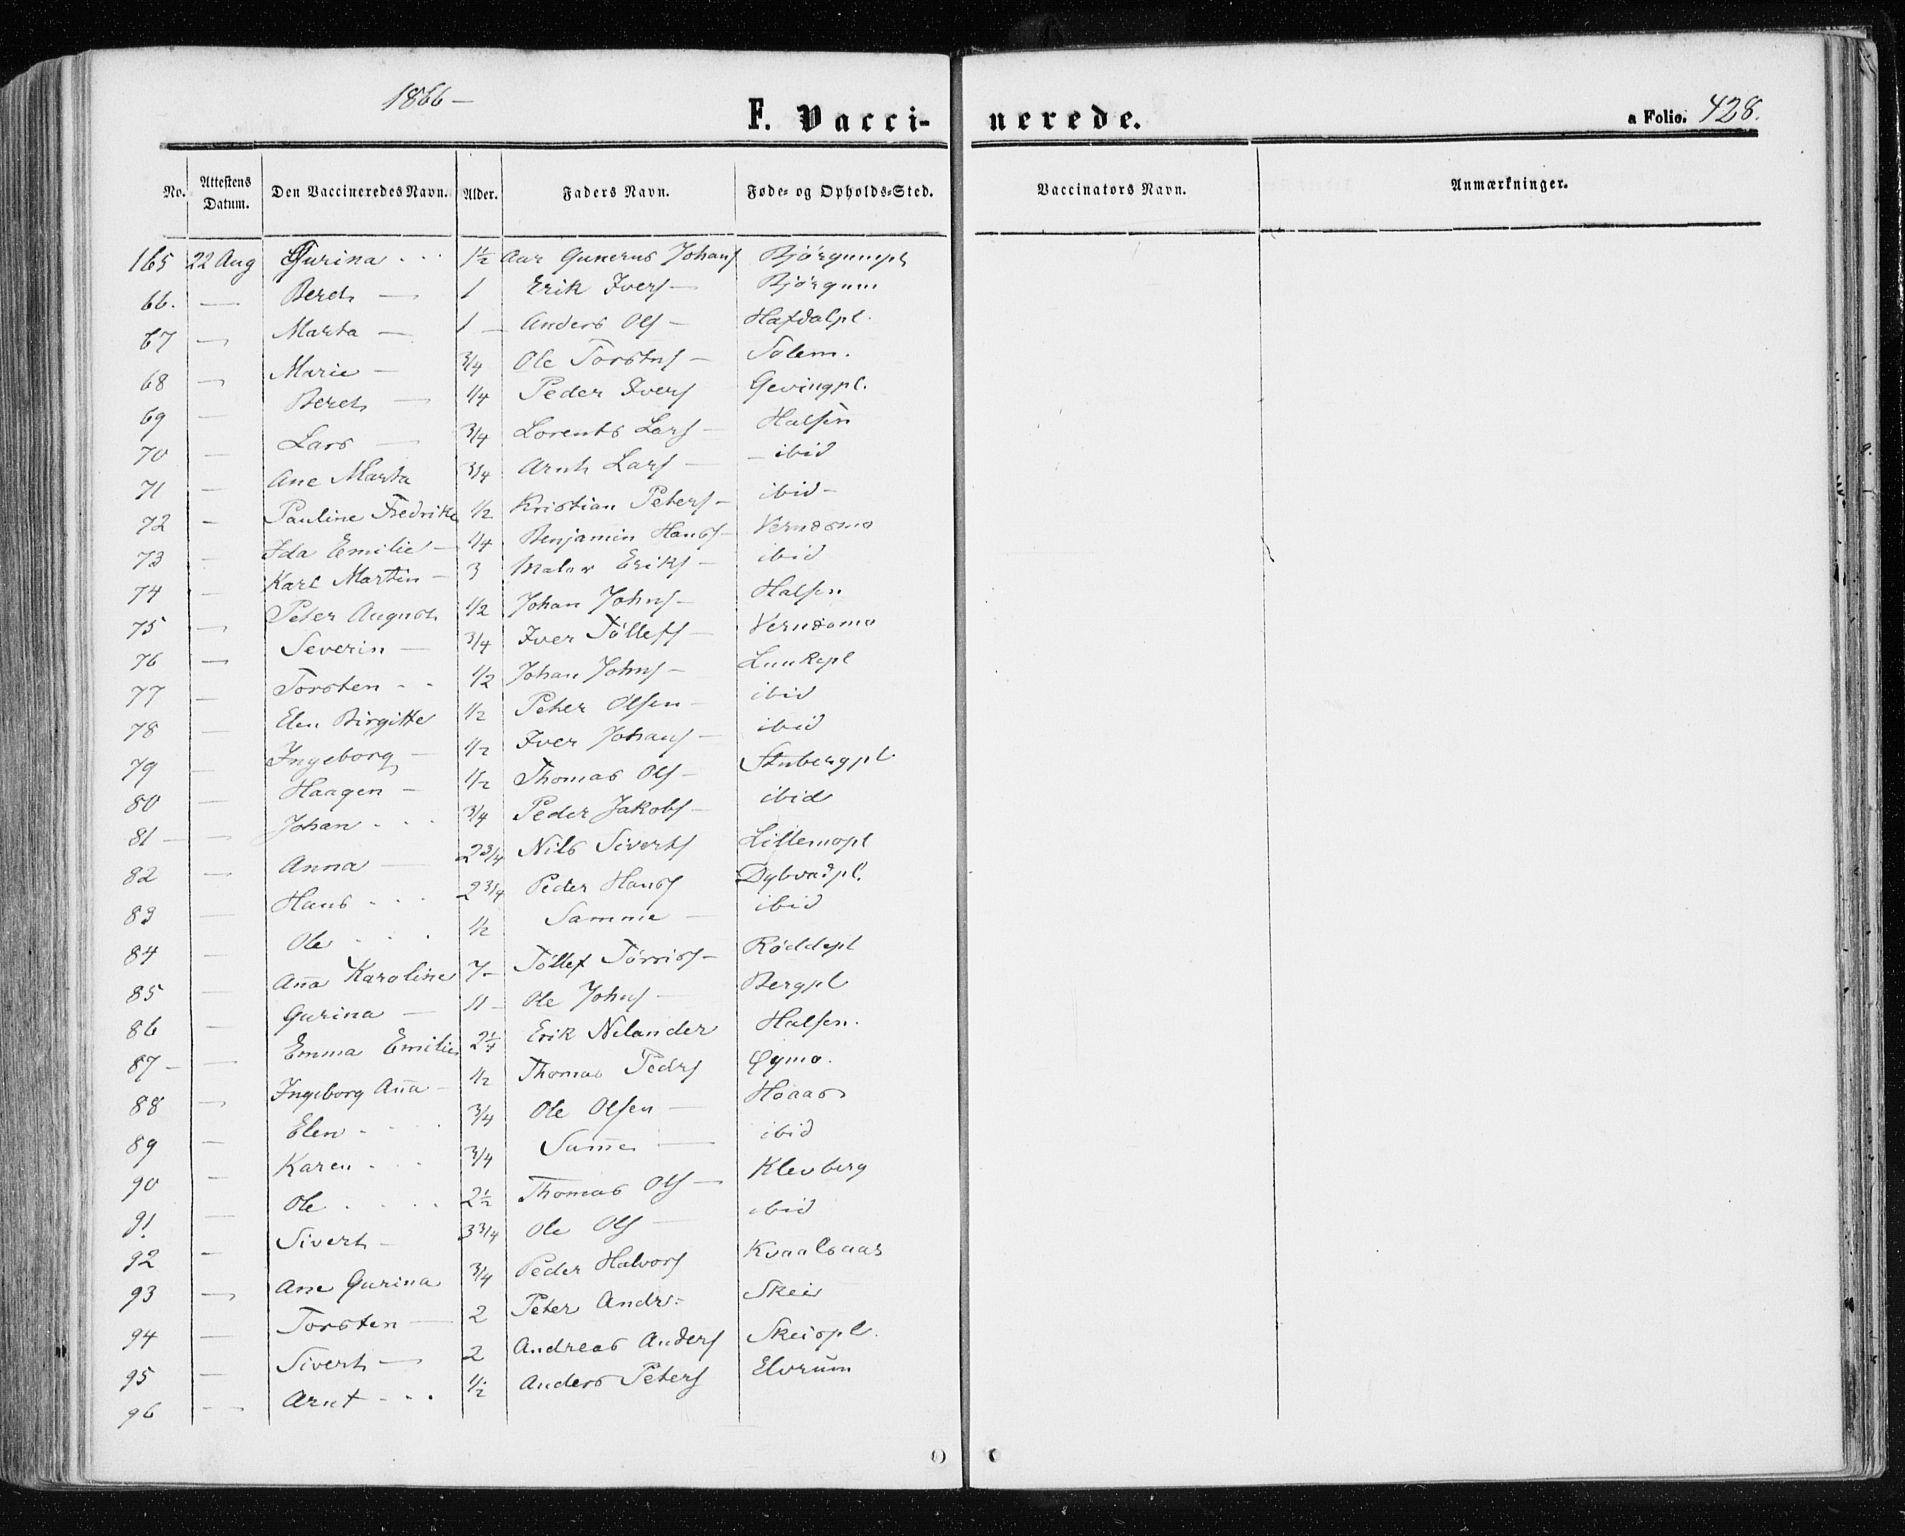 1866 —
F. Vacci- nerede.
a Folio. 428.
No. Attestens Datum. Den Vaccineredes Navn. Alder. Faders Navn. Føde- og Opholds-Sted. Vaccinators Navn. Anmærkninger.
165 22 Aug Gurina 1½ Gunerus Johans Bjørgumpl
66. — Beret — 1 Erik Ivers — Bjørgum
67 — Marta — 1 — Anders Ols — Hafdalpl.
68 — Marie — 3/4 Ole Torstns — Solem.
69 — Beret — 1/4 Peder Ivers Gevingpl.
70 — Lars — 3/4 Lorents Lars — Halsen
71 — Ane Marta 3/4 Arnt Lars — ibid
72 — Pauline Fredrikke 1/2 Kristian Peters — ibid —
73 — Ida Emilie — 1/4 Benjamin Hans — Værnesmo
74 — Karl Martin — 3 Maler Eriks — ibid
75 — Peter August 1/2 Johan Johns — Halsen
76 — Severin — 3/4 Iver Tøllefs — Værnesmo
77 — Torsten 1/2 Johan Johns — Lunkepl
78 — Elen Birgitte 1/2 Peter Olsen — ibid
79 — Ingeborg — 1/2 Iver Johans — ibid
80 — Haagen — 1/2 Thomas Ols — Stubergpl
81 — Johan 3/4 Peder Jakobs — ibid
82 — Anna — 2 3/4 Nils Siverts Lillemopl
83 — Hans 2 3/4 Peder Hans Dybvadpl.
84 — Ole 1/2 Samme — ibid
85 — Aña Karoline 7 — Tøllef Tørris — Røddepl
86 — Gurina — 11 — Ole Johns — Bergpl
87 — Emma Emilie 2¼ Erik Nilander Halsen.
88 — Ingeborg Aña — 1/2 Thomas Peders Øymo.
89 — Elen 3/4 Ole Olsen — Høaas
90 — Karen 3/4 Sam̄e — ibid
91 — Ole 2½ Thomas Ols — Klevberg
92 — Sivert — 3 3/4 Ole Ols — ibid
93 — Ane Gurina 3/4 Peder Halvors Kvaalsaas
94 — Torsten — 2 Peter Andr: Skei
95 — Sivert — 2 Andreas Anders Skeispl.
96 — Arnt 1/2 Anders Peters Elvrum